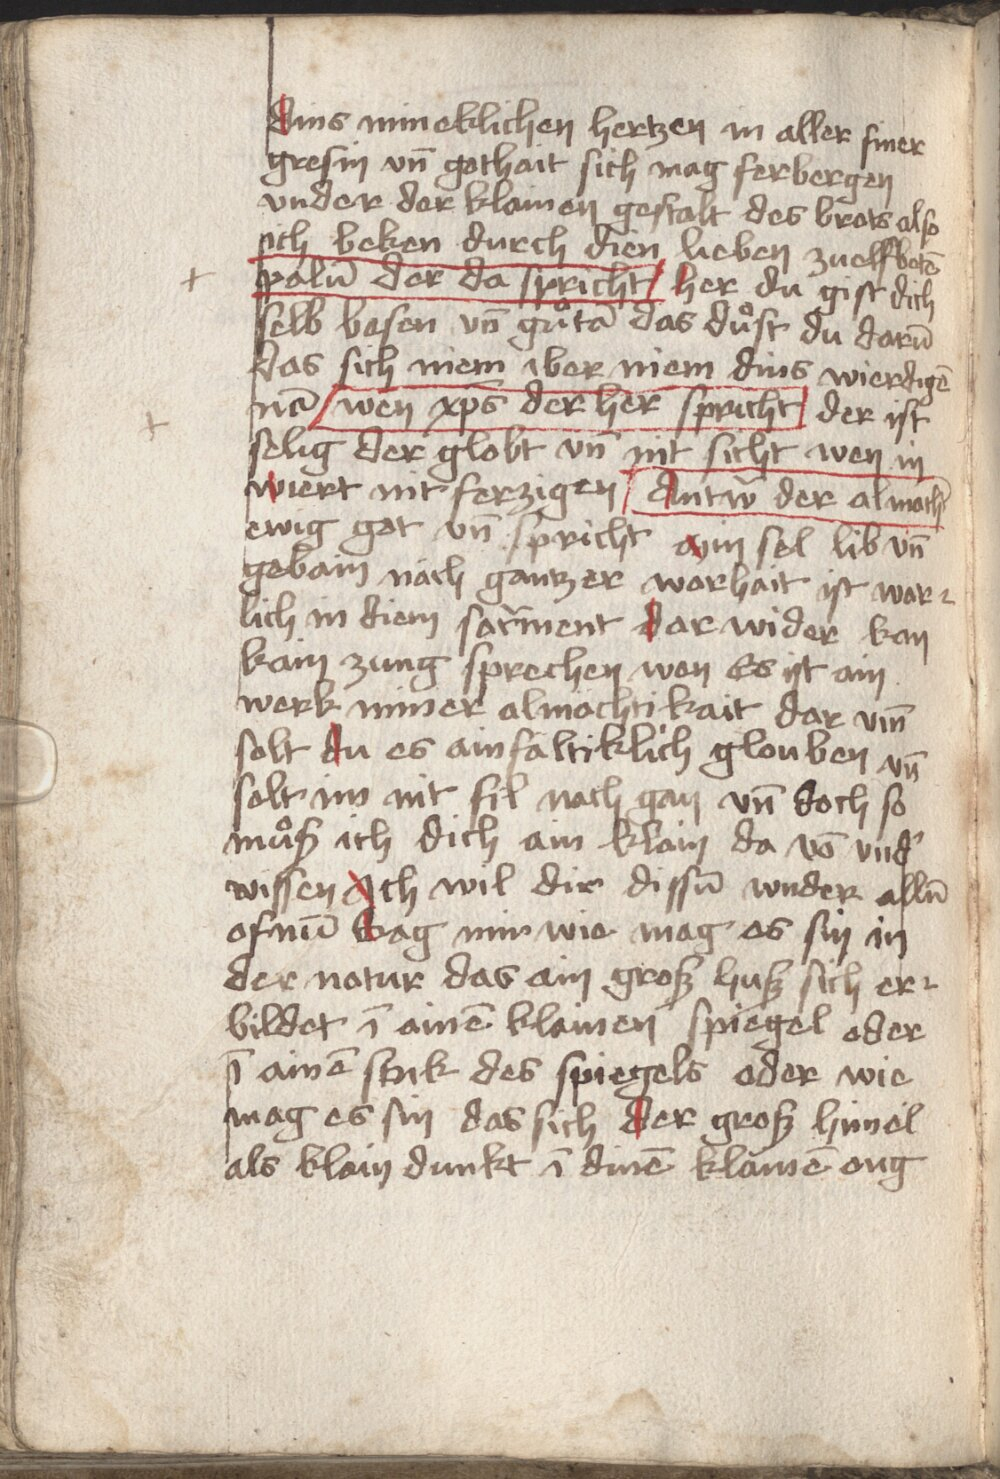 dins mineklichen hertzen in aller siner
gresin vn̄ gothait sich mag ferbergen
vnder der klainen gestalt des brots also
ich beken durch dien lieben zuelfbotē
palū der da spricht her du gist dich
selb bosen vn̄ guͦtā das duͦst du darū
das sich niem iber niem dins wierdigē
wen xp̄s der her spricht der ist
selig der globt vn̄ nit sicht wen in
wiert nit ferzigen Antw̄ der almoch
ewig got vn̄ spricht min sel lib vn̄
gebain nach gantzer worhait ist wor-
lich in diem sacr̄ment dar wider kan
kain zung sprechen wen Es ist ain
werk miner almochtikait dar vm̄
solt du es ainfaltiklich glouben vn̄
solt im nit fil noch gan vn̄ doch so
muͦsz ich dich ain klain da vō vnd'
wissen Ich wil dir dissū wnder allū
ofnū Sag mir wie mag es sin in
der natur das ain grosz husz sich er-
bildet ī ainē klainen spiegel oder
ī ainē stuk des spiegels oder wie
mag es sin das sich der grosz himel
als klain dunkt ī dinē klainē oug